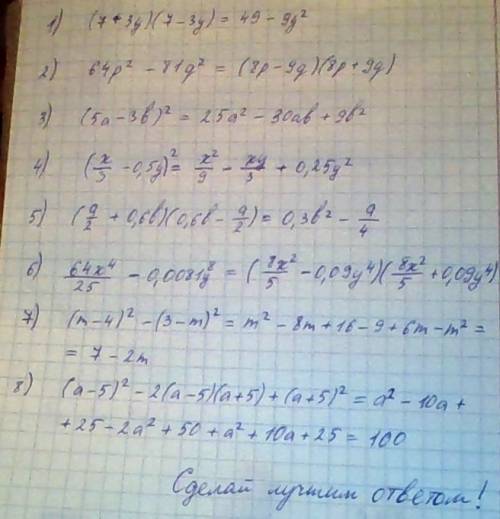 1) (7+3y)(7-3y) = 49 - 9y²
2) 64p² - 81q² = (8p-9q)(8p+9q)
3) (5a-3b)² = 25a² - 30ab + 9b²
4) (x/3 - 0,5y)² = x²/9 - xy/3 + 0,25y²
5) (a/2 + 0,6b)(0,6b - a/2) = 0,3b² - a/4
6) 64x⁴/25 - 0,0081y⁸ = (8x²/5 - 0,09y⁴)(8x²/5 + 0,09y⁴)
7) (m-4)² - (3-m)² = m² - 8m + 16 - 9 + 6m - m² =
= 7 - 2m
8) (a-5)² - 2(a-5)(a+5) + (a+5)² = a² - 10a +
+ 25 - 2a² + 50 + a² + 10a + 25 = 100
Сделай лучшим ответом!